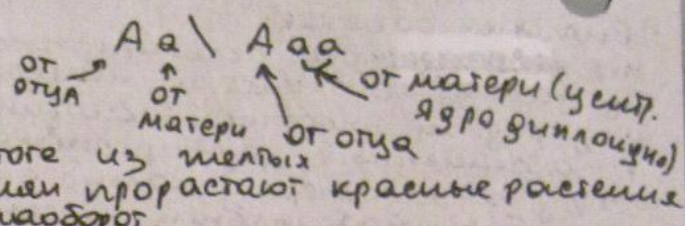 Аа \ Ааа
от отца
от матери
от отца
от матери (центр.
ядро диплоидно)
из желтых
прорастают красные растения
наоборот